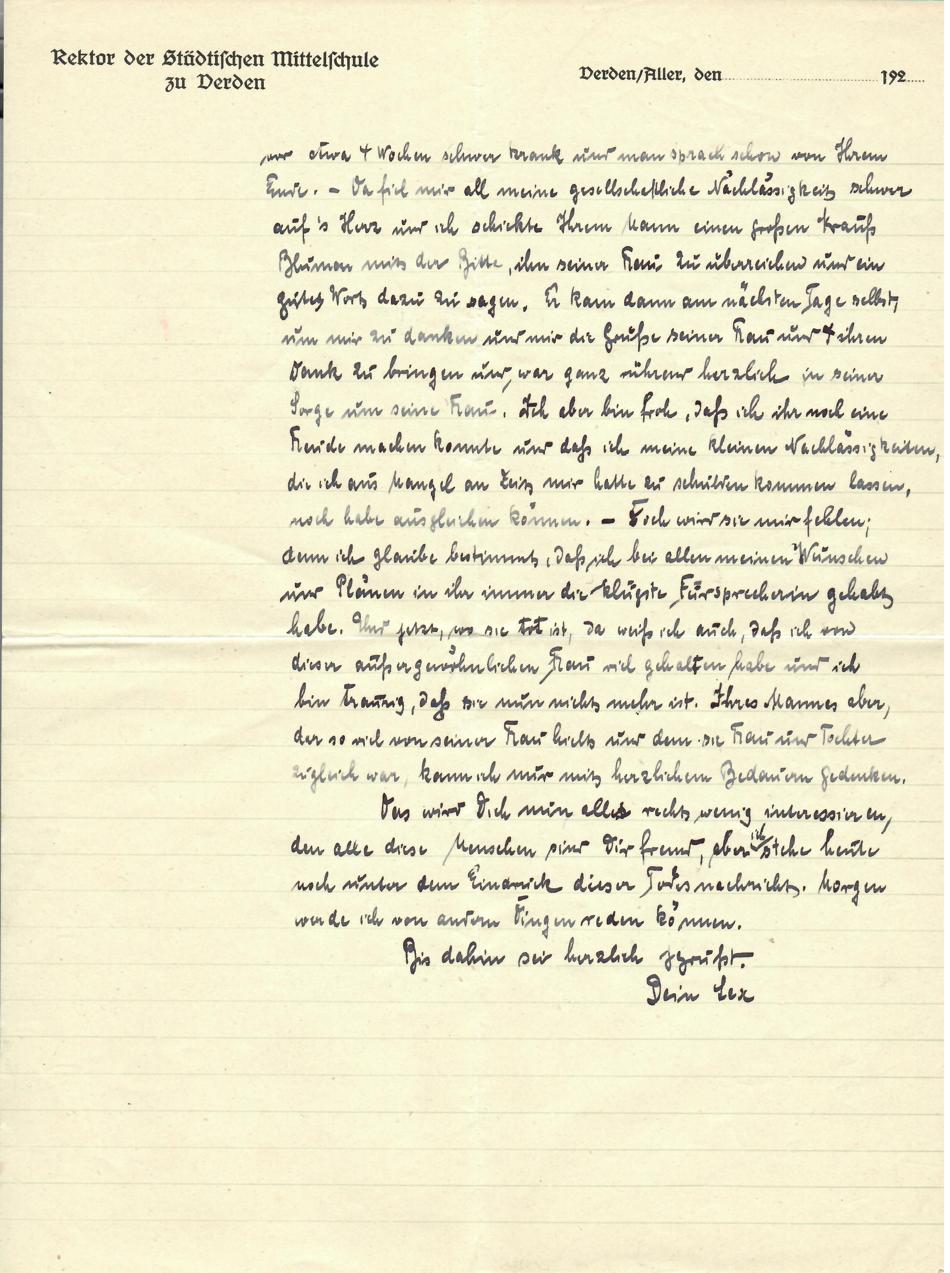 Rektor der Städtischen Mittelschule
zu Verden
Verden/Aller, den 192
vor etwa 4 Wochen schwer krank und man sprach schon von Ihrem
Ende. – Da fiel mir all meine gesellschaftliche Nachlässigkeit schwer
auf's Herz und ich schickte Ihrem Mann einen großen Strauß
Blumen mit der Bitte, ihn seiner Frau zu überreichen und ein
gutes Wort dazu zu sagen. Er kam dann am nächsten Tage selbst,
um mir zu danken und mir die Grüße seiner Frau und ihren
Dank zu bringen und war ganz rührend herzlich in seiner
Sorge um seine Frau. Ich aber bin froh, daß ich ihr noch eine
Freude machen konnte und daß ich meine kleinen Nachlässigkeiten,
die ich aus Mangel an Zeit mir hatte zu schulden kommen lassen,
noch habe ausgleichen können. – Doch wird sie mir fehlen;
denn ich glaube bestimmt, daß ich bei allen meinen Wünschen
und Plänen in ihr immer die klügste Fürsprecherin gehabt
habe. Und jetzt, wo sie tot ist, da weiß ich auch, daß ich von
dieser außergewöhnlichen Frau viel gehalten habe und ich
bin traurig, daß sie nun nicht mehr ist. Ihres Mannes aber,
der so viel von seiner Frau hielt und dem sie Frau und Tochter
zugleich war, kann ich nur mit herzlichem Bedauern gedenken.
Das wird Dich nun alles recht wenig interessieren,
den alle diese Menschen sind Dir fremd, aber ich stehe heute
noch unter dem Eindruck dieser Todesnachricht. Morgen
werde ich von andern Dingen reden können.
Bis dahin sei herzlich gegrüßt.
Dein Lex